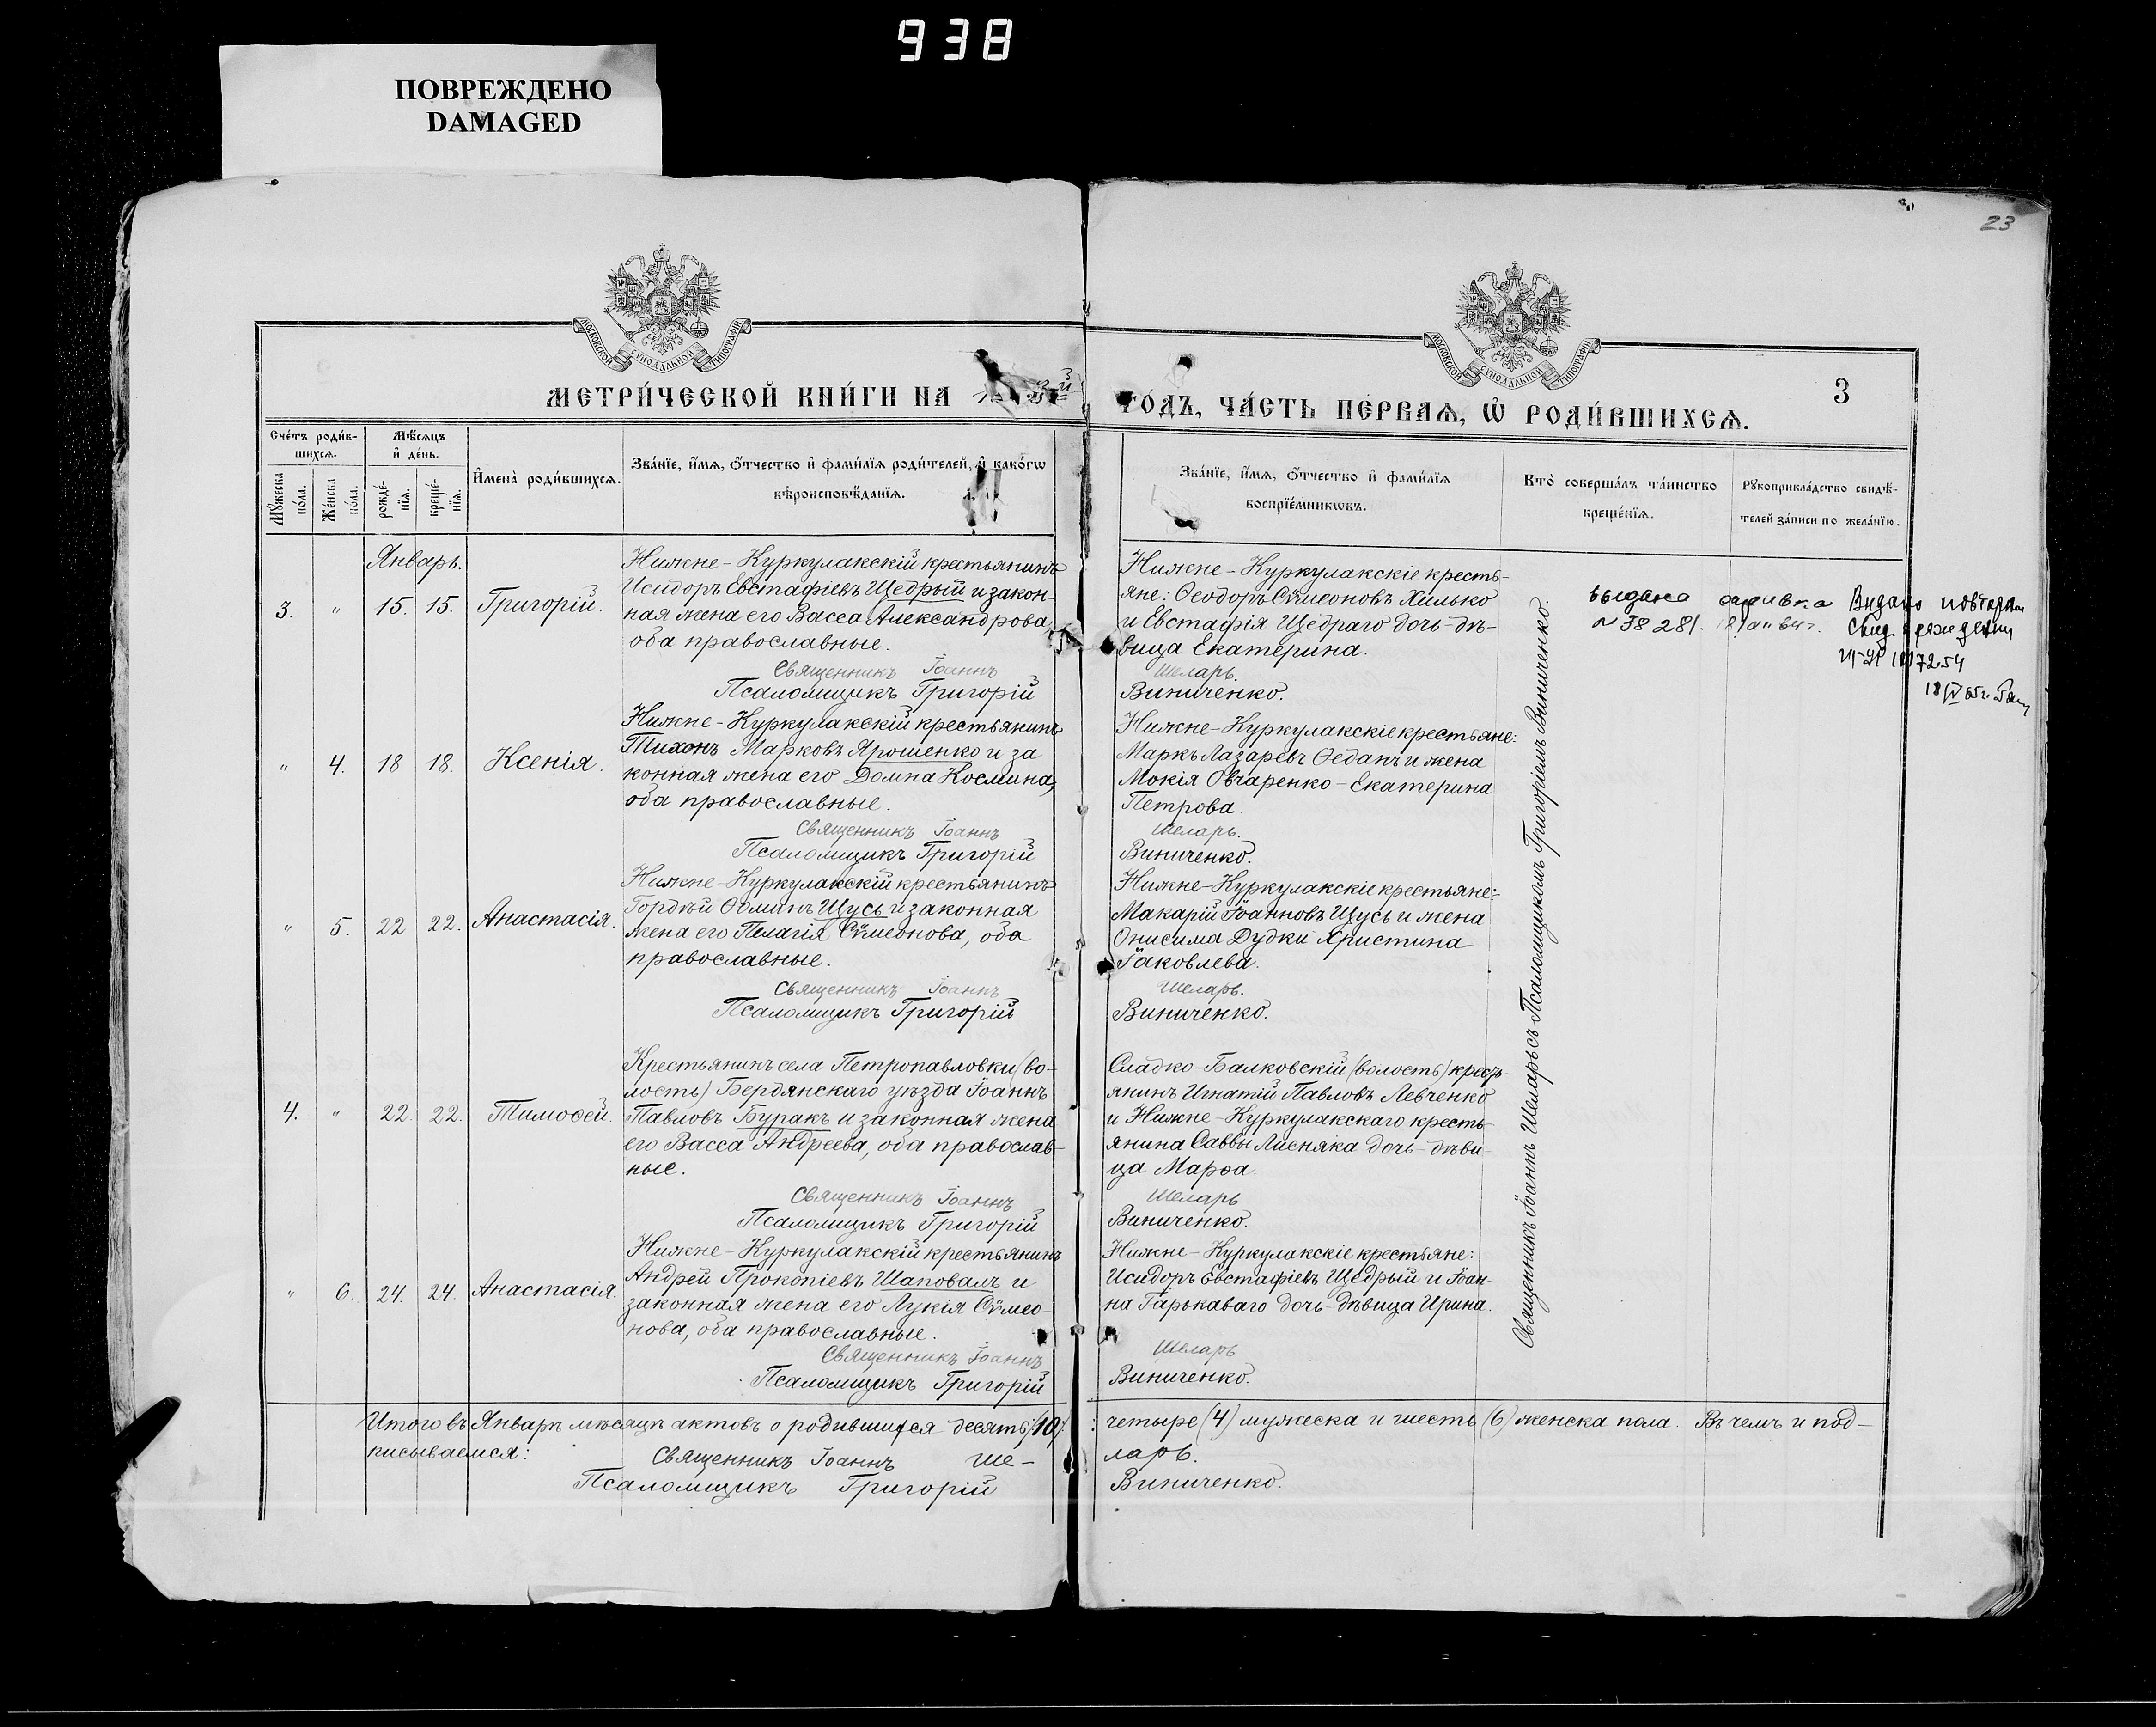 938
ПОВРЕЖДЕНО
DAMAGED
23
МОСКОВСКОЙ СУНОДАЛЬНОЙ ТИПОГРАФІИ
МОСКОВСКОЙ СУНОДАЛЬНОЙ ТИПОГРАФІИ
МЕТРИ́ЧЕСКОЙ КНИ́ГИ НА
ГО́ДЪ, ЧА́СТЬ ПЕ́РВАѦ, Ѡ РОДИ́ВШИХСѦ.
3
Сче́тъ роди́в-
шихсѧ.
Мѣ́сѧцъ
и де́нь.
Мꙋ́жеска
по́ла.
Же́нска
по́ла.
рожде́-
нїѧ.
креще́-
нїѧ.
Имена̀ роди́вшихсѧ.
Зва́нїе, и́мѧ, ѻ́тчество и фами́лїѧ роди́телей, и како́гѡ
вѣроисповѣ́данїѧ.
Зва́нїе, и́мѧ, ѻ́тчество и фами́лїѧ
воспрїе́мникѡвъ.
Кто̀ соверша́лъ та́инство
креще́нїѧ.
Рꙋкоприкла́дство свидѣ́-
телей за́писи по жела́нїю.
Январь.
3. " 15. 15. Григорій.
Нижне-Куркулакскій крестьянинъ
Исидоръ Евстафіевъ Щедрый и закон-
ная жена его Васса Александрова,
оба православные.
Священникъ Іоаннъ
Псаломщикъ Григорій
Нижне-Куркулакскіе кресть-
яне: Ѳеодоръ Сѵмеоновъ Хилько
и Евстафія Щедраго дочь-дѣ-
вица Екатерина.
Шеларь.
Виниченко.
выдана справка
N 38281.
Видано повторн
Свид.
18/IV 65г.
" 4. 18 18. Ксенія.
Нижне-Куркулакскій крестьянинъ
Тихонъ Марковъ Ярошенко и за
конная жена его Домна Космина,
оба православные.
Священникъ Іоаннъ
Псаломщикъ Григорій
Нижне-Куркулакскіе крестьяне:
Маркъ Лазаревъ Ѳеданъ и жена
Мокія Овчаренко-Екатерина
Петрова.
Шеларь.
Виниченко.
" 5. 22 22. Анастасія.
Нижне-Куркулакскій крестьянинъ
Гордѣй Ѳоминъ Щусь и законная
жена его Пелагія Сѵмеонова, оба
православные.
Священникъ Іоаннъ
Псаломщикъ Григорій
Нижне-Куркулакскіе крестьяне:
Макарій Іоанновъ Щусь и жена
Онисима Дудки Христина
Іаковлева.
Шеларь.
Виниченко.
4. " 22. 22. Тимоѳей.
Крестьянинъ села Петропавловки (во-
лость) Бердянскаго уѣзда Іоаннъ
Павловъ Буракъ и законная жена
его Васса Андреева, оба православ-
ные.
Священникъ Іоаннъ
Псаломщикъ Григорій
Сладко-Балковскій (волость) кресть-
янинъ Игнатій Павловъ Левченко
и Нижне-Куркулакскаго кресть-
янина Саввы Лисняка дочь-дѣви-
ца Марѳа.
Шеларь
Виниченко.
" 6. 24. 24. Анастасія.
Нижне-Куркулакскій крестьянинъ
Андрей Прокопіевъ Шаповалъ и
законная жена его Лукія Сѵмео-
нова, оба православные.
Священникъ Іоаннъ
Псаломщикъ Григорій
Нижне-Куркулакскіе крестьяне:
Исидоръ Евстафіевъ Щедрый и Іоан-
на Гарькаваго дочь-дѣвица Ирина.
Шеларь
Виниченко.
Священникъ Іоаннъ Шеларь съ Псаломщикомъ Григоріемъ Виниченко.
Итого въ Январѣ мѣсяцѣ актовъ о родившихся десять (10): четыре (4) мужеска и шесть (6) женска пола. Въ чемъ и под-
писываемся:
Священникъ Іоаннъ Ше-ларь.
Псаломщикъ Григорій Виниченко.